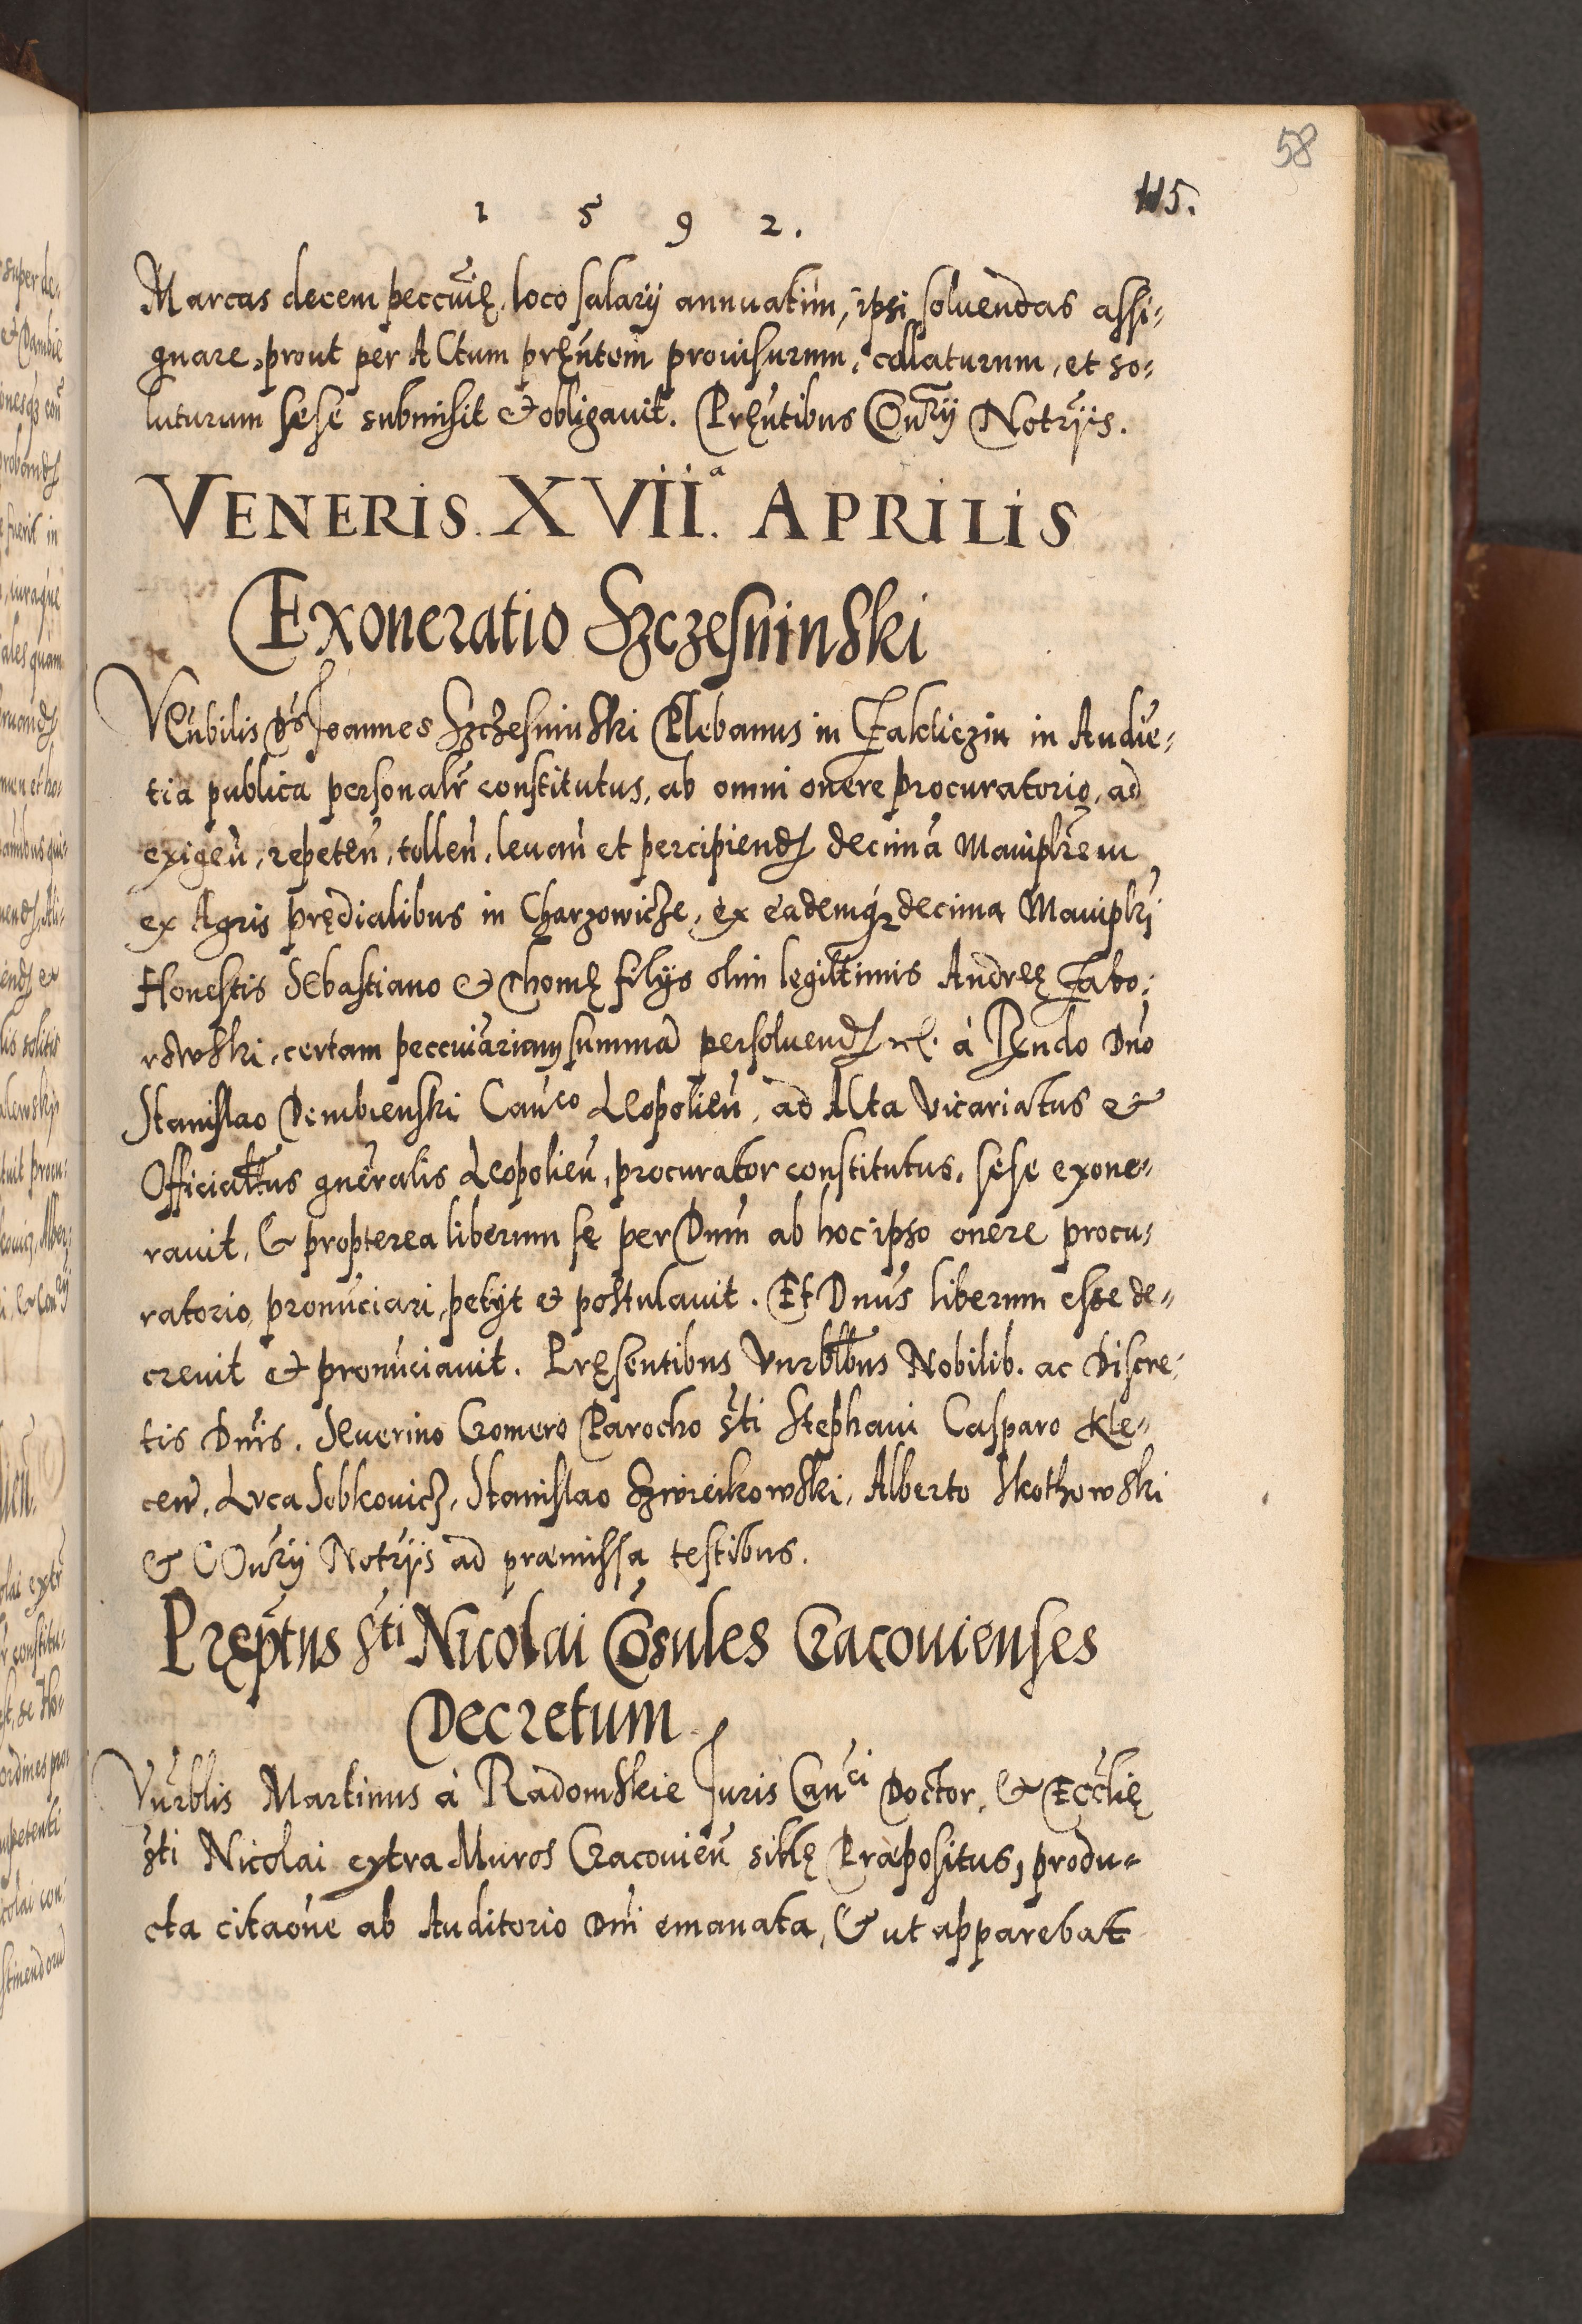 58
115.
1 5 9 2.
Marcas decem peccūię, loco salarij annuatim, ipsi soluendas assi-
gnare, prout per Actum pręn̄tem prouisurum, collaturum, et so-
luturum sese submisit & obligauit. Pręn̄tibus Con̄rij Notrijs.
VENERIS. XVII.ª APRILIS
Exoneratio Szczesninski
Vēn̄bilis Dn̄s Joannes Szczesninski Plebanus in Zakliczin in Audiē-
tia publica personalr̄ constitutus, ab omni onere procuratorio, ad
exigen̄, repeten̄, tollen̄, leuan̄ et percipiend̄ decimā Maniplr̄em
ex Agris prędialibus in Charzowicze, ex eademq; decima Maniplr̄i
Honestis Sebastiano & Thomę filijs olim legittimis Andreę Tabo-
rowski, certam peccuīariam summā persoluend̄ à Rn̄do Dn̄o
Stanislao Dembienski Can̄co Leopolien̄, ad Acta Vicariatus &
Officialatus gn̄eralis Leopolien̄, procurator constitutus, sese exone-
rauit, & propterea liberum sę per Dn̄m ab hoc ipso onere procu-
ratorio, pronūciari, petijt & postulauit. Et Dn̄us liberum esse de-
creuit & pronūciauit. Pręsentibus Vnrblbus Nobilib. ac Discre-
tis Dn̄is. Seuerino Gomero Parocho S̄ti Stephani Casparo Kle-
cen̄, Luca Sobkovicz, Stanislao Szwieikowski, Alberto Skothowski
& COn̄rij Notrijs ad præmissa testibus.
Pręptus S̄ti Nicolai Cōsules Cracouienses
Decretum.
Vn̄rblis Martinus à Radomskie Juris Can̄ci Doctor, & Ecclię
S̄ti Nicolai extra Muros Cracouien̄ sitę Præpositus, produ-
cta citaōne ab Auditorio Dn̄i emanata, & ut apparebat